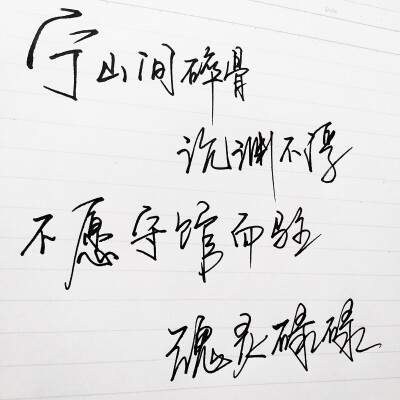 宁山间碎骨
沉渊不浮
不愿守馆而驻
魂灵碌碌